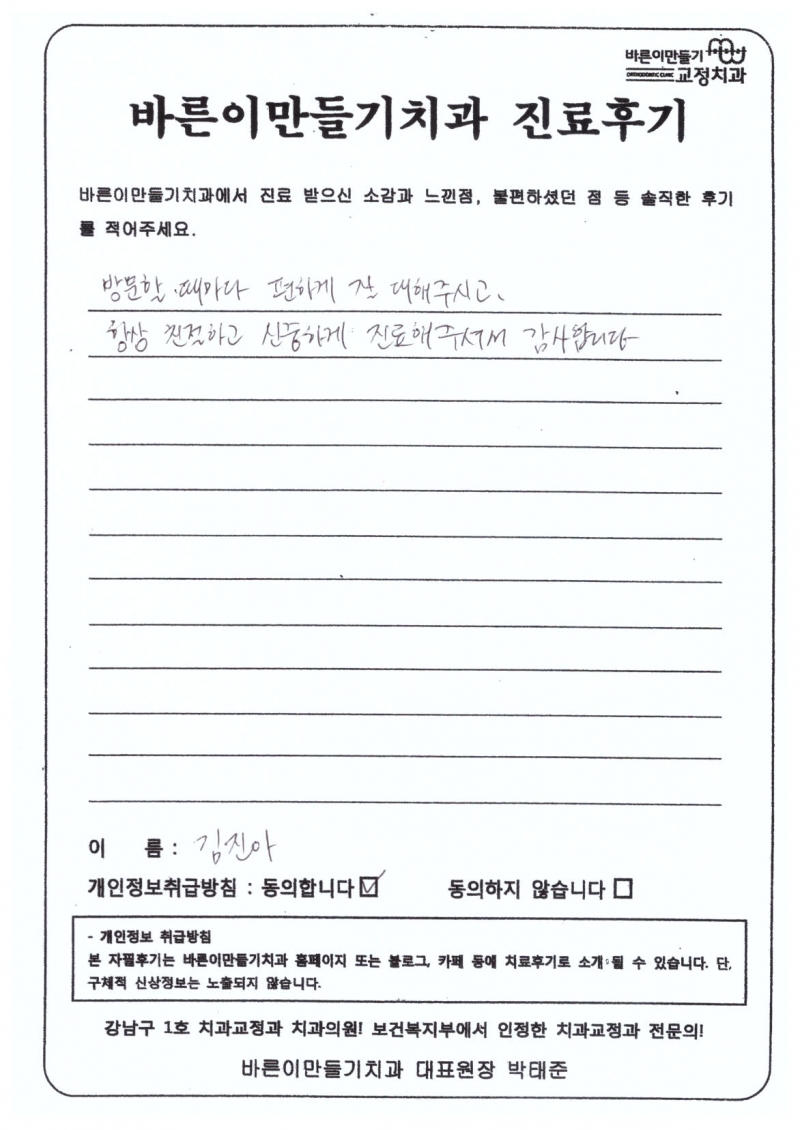 바른이만들기
ORTHODONTIC CLINIC 교정치과
바른이만들기치과 진료후기
바른이만들기치과에서 진료 받으신 소감과 느낀점, 불편하셨던 점 등 솔직한 후기
를 적어주세요.
방문할 때마다 편하게 잘 대해주시고,
항상 친절하고 신중하게 진료해주셔서 감사합니다
이 름 : 김진아
개인정보취급방침 : 동의합니다 ☑ 동의하지 않습니다 ☐
- 개인정보 취급방침
본 자필후기는 바른이만들기치과 홈페이지 또는 블로그, 카페 등에 치료후기로 소개 될 수 있습니다. 단,
구체적 신상정보는 노출되지 않습니다.
강남구 1호 치과교정과 치과의원! 보건복지부에서 인정한 치과교정과 전문의!
바른이만들기치과 대표원장 박태준